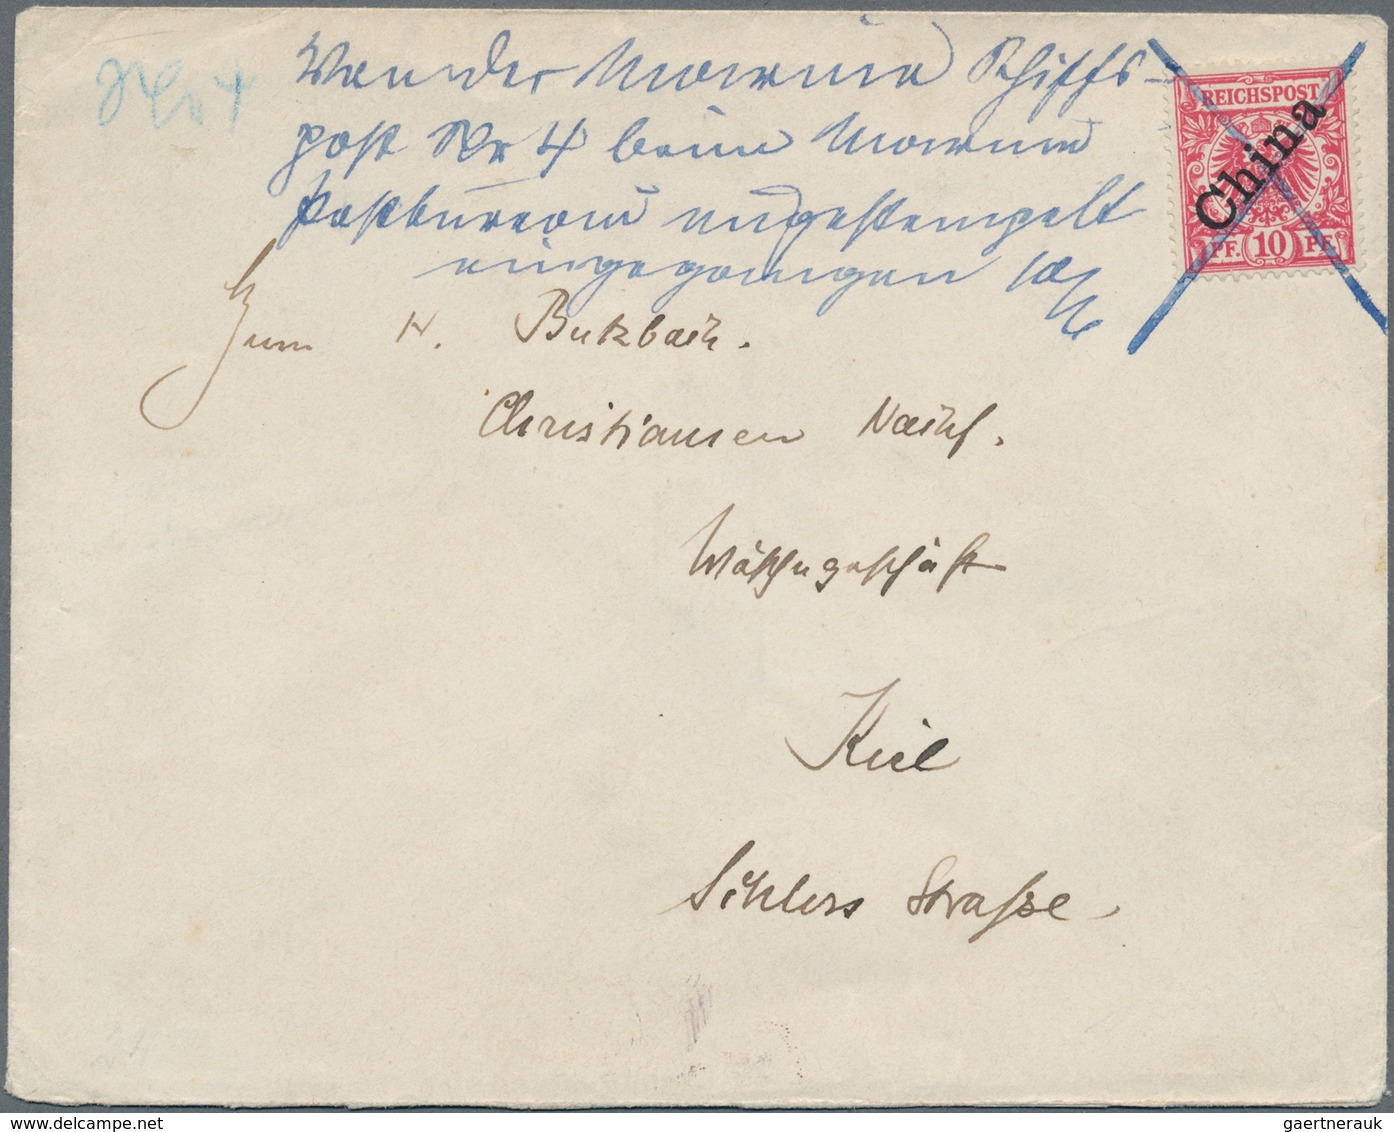 No 4
Von der Marine Schiffs-
post Nr 4 beim Marine
Postbureau ungestempelt
eingegangen 10/6
REICHSPOST
China
PF. 10 PF.
H. Butzbach.
Christiansen Nachf.
Wäschegeschäft
Kiel
Schloss Straße
gaertnerauk